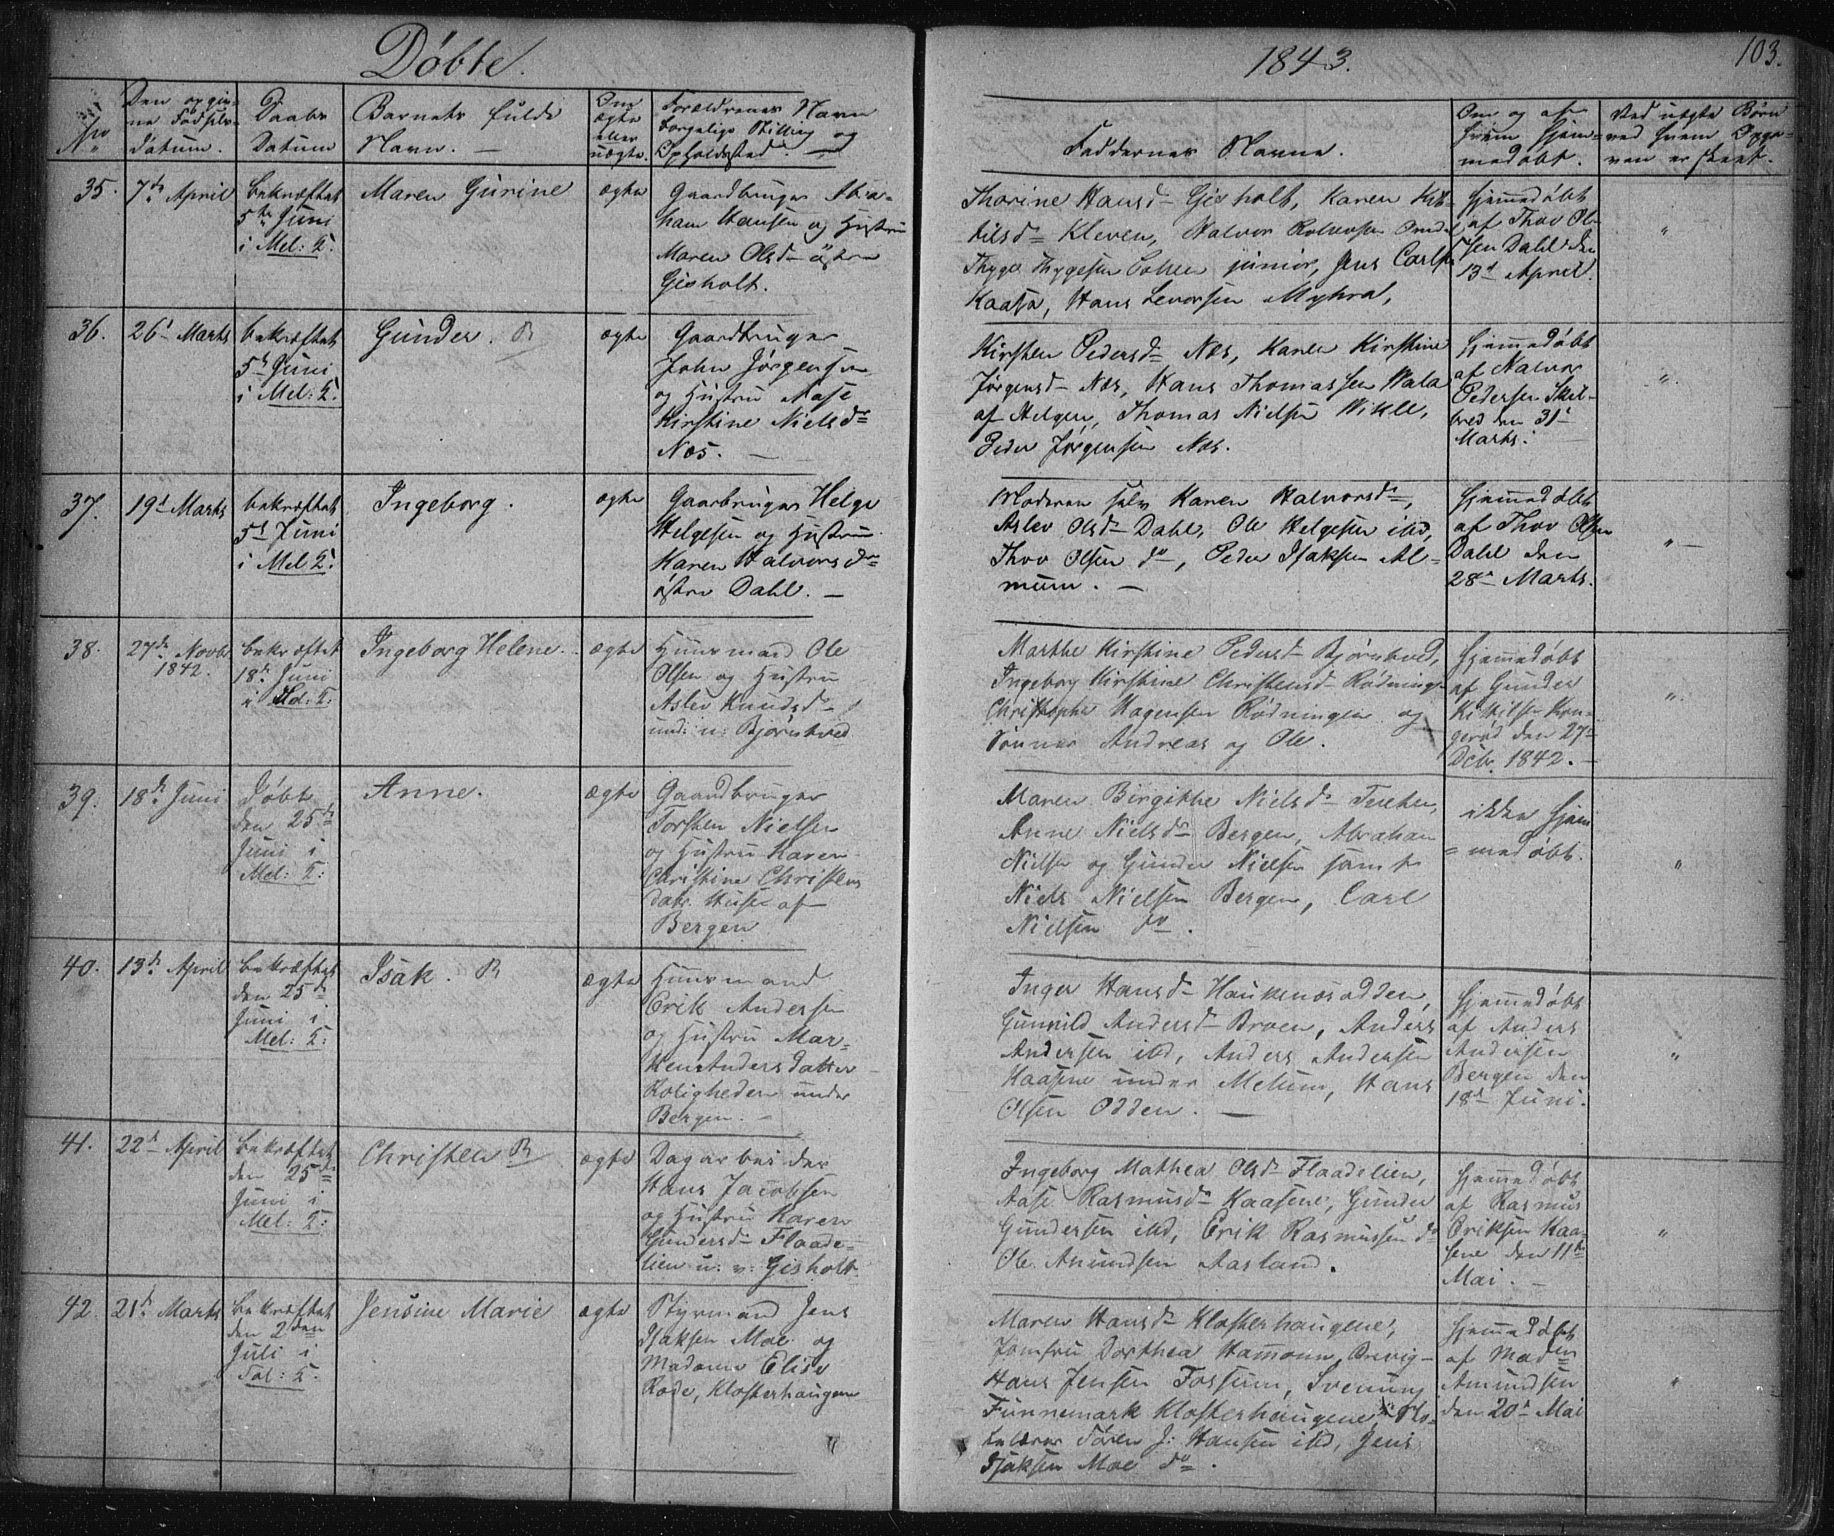 Døbte.
1843.
103.
No
Den opgiv-
ne Fødsels-
datum.
Daabs
Datum
Barnets fulde
Navn.
Om
ægte
eller
uægte.
Forældrenes Navn
borgelige Stilling og
Opholdssted.
Faddernes Navne.
Om og af
hvem hjem-
medøbt.
Ved uægte Børn
ved hvem Opga-
ven er skeet.
35.
7de April
bekræftet
5te Juni
i Mel: K:
Maren Gurine
ægte
Gaardbruger Abra-
ham Hansen og Hustru
Maren Olsd- østre
Gisholt.
Thorine Hansd- Gisholt, Karen Kit-
tilsd- Kleven, Halvor Rolvorsen
Thyge Thygesen junior, Jens Carlsen
Kaasa, Hans Levorsen Myhra,
Hjemmedøbt
af Thov Ol-
sen Dahl den
13d April.
"
36.
26d Marts
bekræftet
5d Juni
i Mel: K:
Gunder. R
ægte
Gaardbruger
John Jørgensen
og Hustru Aase
Kirstine Nielsdr
Næs.
Kirsten Pedersd- Næs, Karen Kirstine
Jørgensd- Næs, Hans Thomassen Wala
af Helgen, Thomas Nielsen
Peder Jørgensen Næs.
Hjemmedøbt
af Halvor
Pedersen Skil-
bred den 31d
Marts.
"
37.
19d Marts
bekræftet
5d Juni
i Mel K:
Ingeborg.
ægte
Gaarbruger Helge
Helgesen og Hustru
Karen Halvorsdr
østre Dahl.
Moderen selv Karen Halvorsdr,
Aslev Olsd- Dahl, Ole Helgesen ibd,
Thov Olsen do, Peder Isaksen Al-
mum.
Hjemmedøbt
af Thov Olsen
Dahl den
28d Marts.
"
38.
27de Novbr
1842.
bekræftet
18de Juni
i Mel: K:
Ingeborg Helene.
ægte
Huusmand Ole
Olsen og Hustru
Aslev Knudsd-
und: Bjørntved
Marthe Kirstine Pedersd- Bjørntved,
Ingeborg Kirstine Christensd- Rødning-
Christopher Hagensen Rødningen og
Sønner Andreas og Ole.
Hjemmedøbt
af Gunder
Kittilsen Kon-
gerød den 27-
Dcbr. 1842.
"
39.
18de Juni
Døbt
den 25d
Juni i
Mel: K:
Anne.
ægte
Gaardbruger
Torsten Nielsen
og Hustru Karen
Christine Christens
datr. Huset af
Bergen
Maren Birgitthe Nielsd-
Anne Nielsdr Bergen, Abraham
Nielsen og Gunder Nielsen samt
Niels Nielsen Bergen, Carl
Nielsen do.
ikke hjem
= medøbt.
"
40.
13de April
bekræftet
den 25de
Juni i
Mel: K:
Isak. R
ægte
Huusmand
Erik Andersen
og Hustru Mar-
then Andersdatter
Roligheden under
Bergen.
Inger Hansd- Haukenæsodden,
Gunnild Andersd- Broen, Anders
Andersen ibd, Anders Andersen
Kaasene under Melum, Hans
Olsen Odden.
Hjemmedøbt
af Anders
Andersen
Bergen den
18d Juni.
"
41.
22d April
bekræftet
den 25de
Juni i
Mel: K:
Christen R
ægte
Dagarbeider
Hans Jacobsen
og Hustru Karen
Gundersd- Flaade-
lien u: v: Gisholt
Ingeborg Mathea Olsd- Flaadelien,
Aase Rasmusd- Kaasene, Gunder
Gundersen ibd, Erik Rasmussen do
Ole Amundsen Aasland.
Hjemmedøbt
af Rasmus
Eriksen Kaa-
sene den 11te
Mai.
"
42.
21d Marts
bekræftet
den 2den
Juli i
Sol: K:
Jensine Marie
ægte
Styrmand Jens
Isaksen Moe og
Madame Elise
Rode, Klosterhaugene
Maren Hansd- Klosterhaugene,
Jomfru Dorthea Hamonn, Brevig-
Hans Jensen Fossum, Svenung
Funnemark Klosterhaugene, Sko-
lelærer Søren J: Hansen ibd, Jens
Isaksen Moe do.
Hjemmedøbt
af Mad
Amundsen
den 20d Mai
"